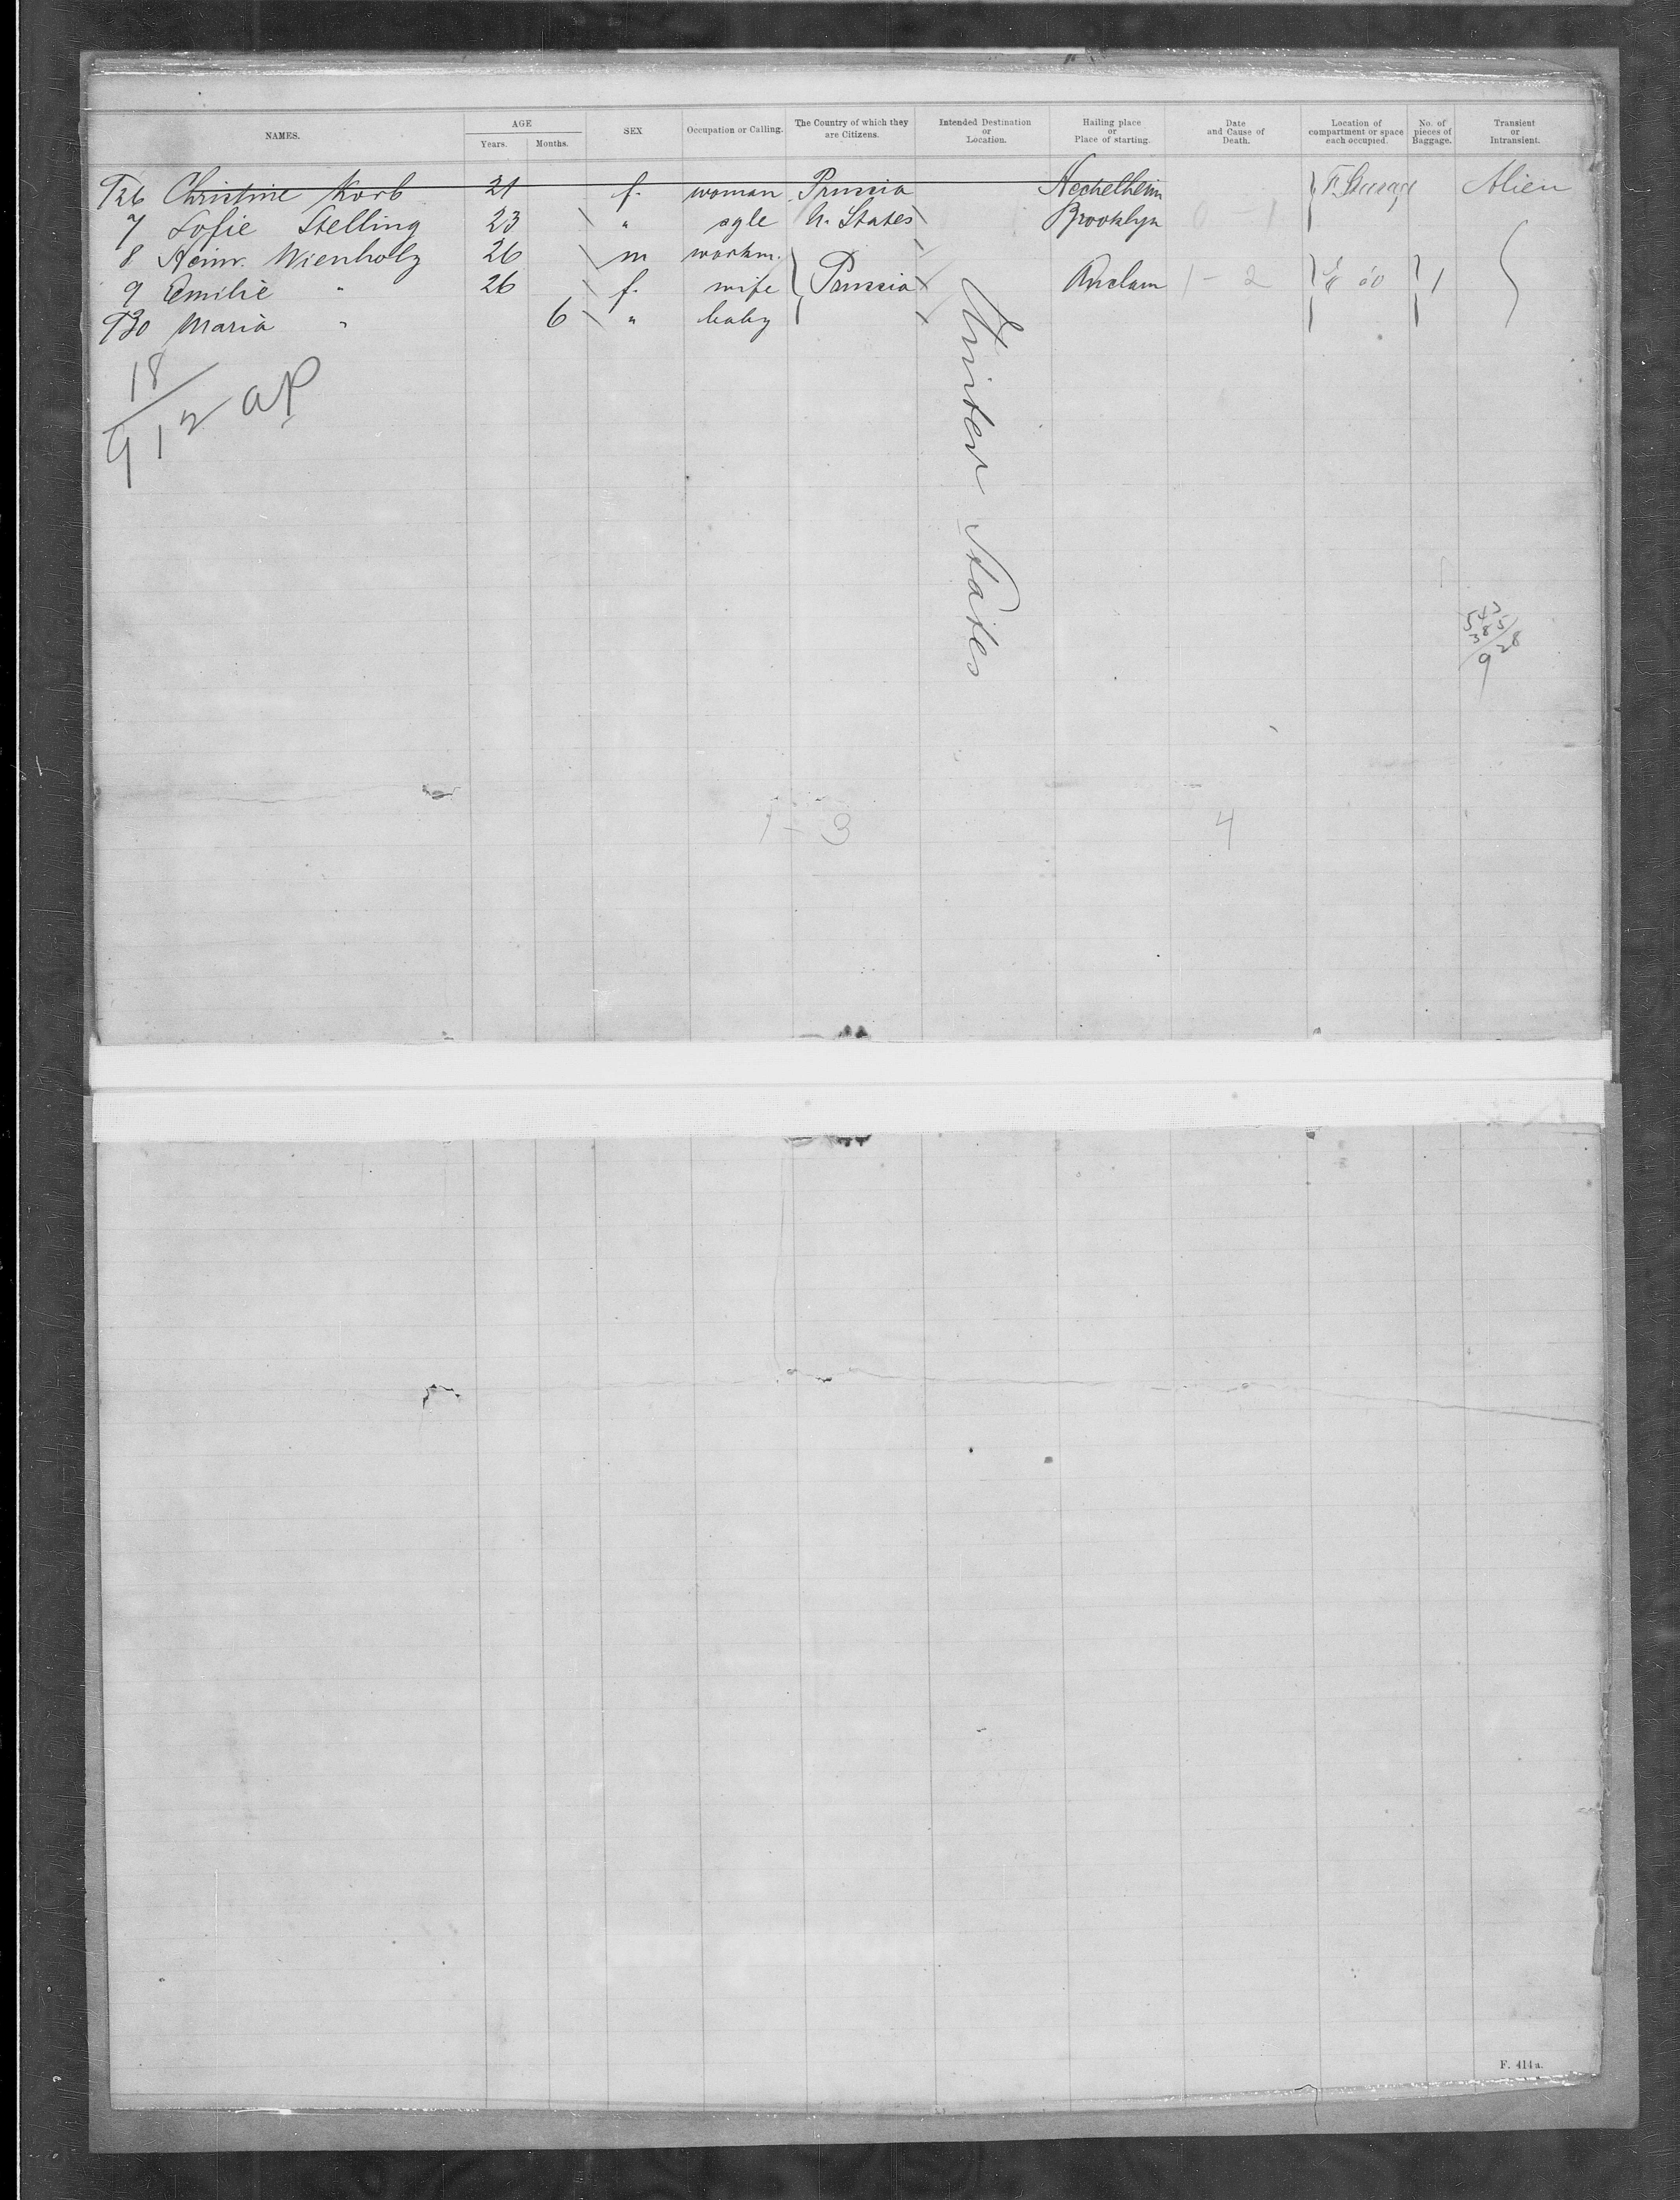 NAMES. AGE Years. Months. SEX Occupation or Calling. The Country of which they are Citizens. Intended Destination or Location. Hailing place or Place of starting. Date and Cause of Death. Location of compartment or space each occupied. No. of pieces of Baggage. Transient or Intransient.
926 Christine Korb 21 f. woman Prussia Hechelheim Alien
7 Sofie Stelling 23 " sgle U. States Brooklyn 0 - 1
8 Heinr. Wienholz 26 m workm.
9 Emilie " 26 f. wife Prussia Anclam 1 - 2 1
930 Maria " 6 " baby
United States
18
912 ap
543
385
928
1 - 3 4
F. 414a.